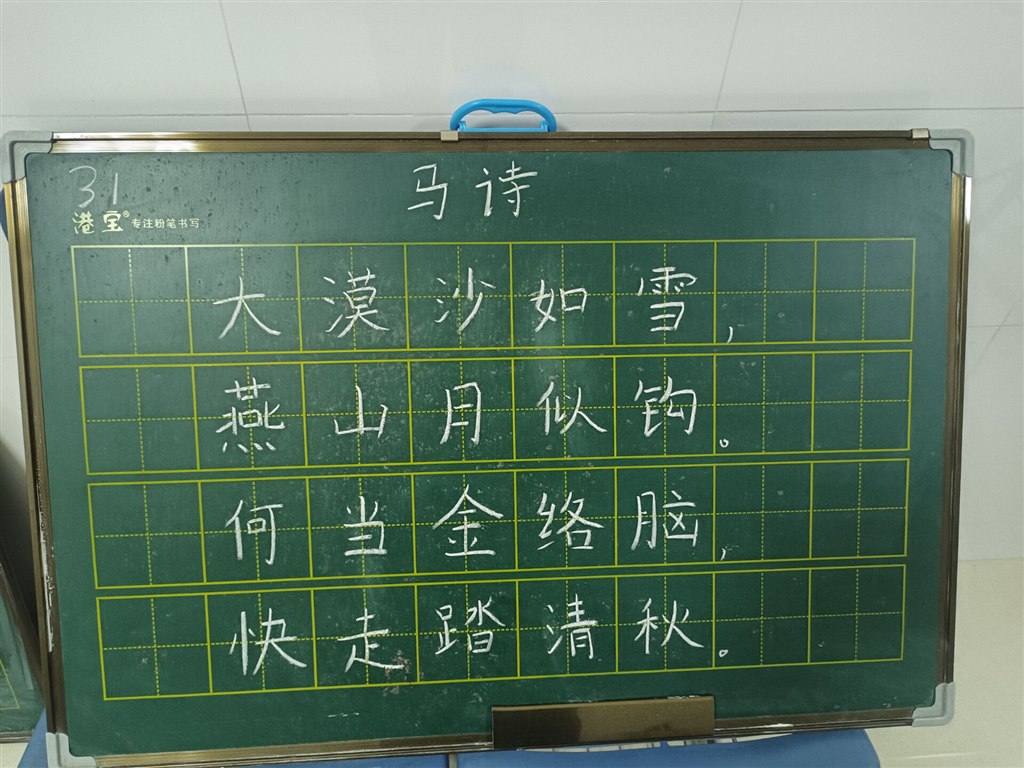 31
马诗
港宝® 专注粉笔书写
大漠沙如雪，
燕山月似钩。
何当金络脑，
快走踏清秋。